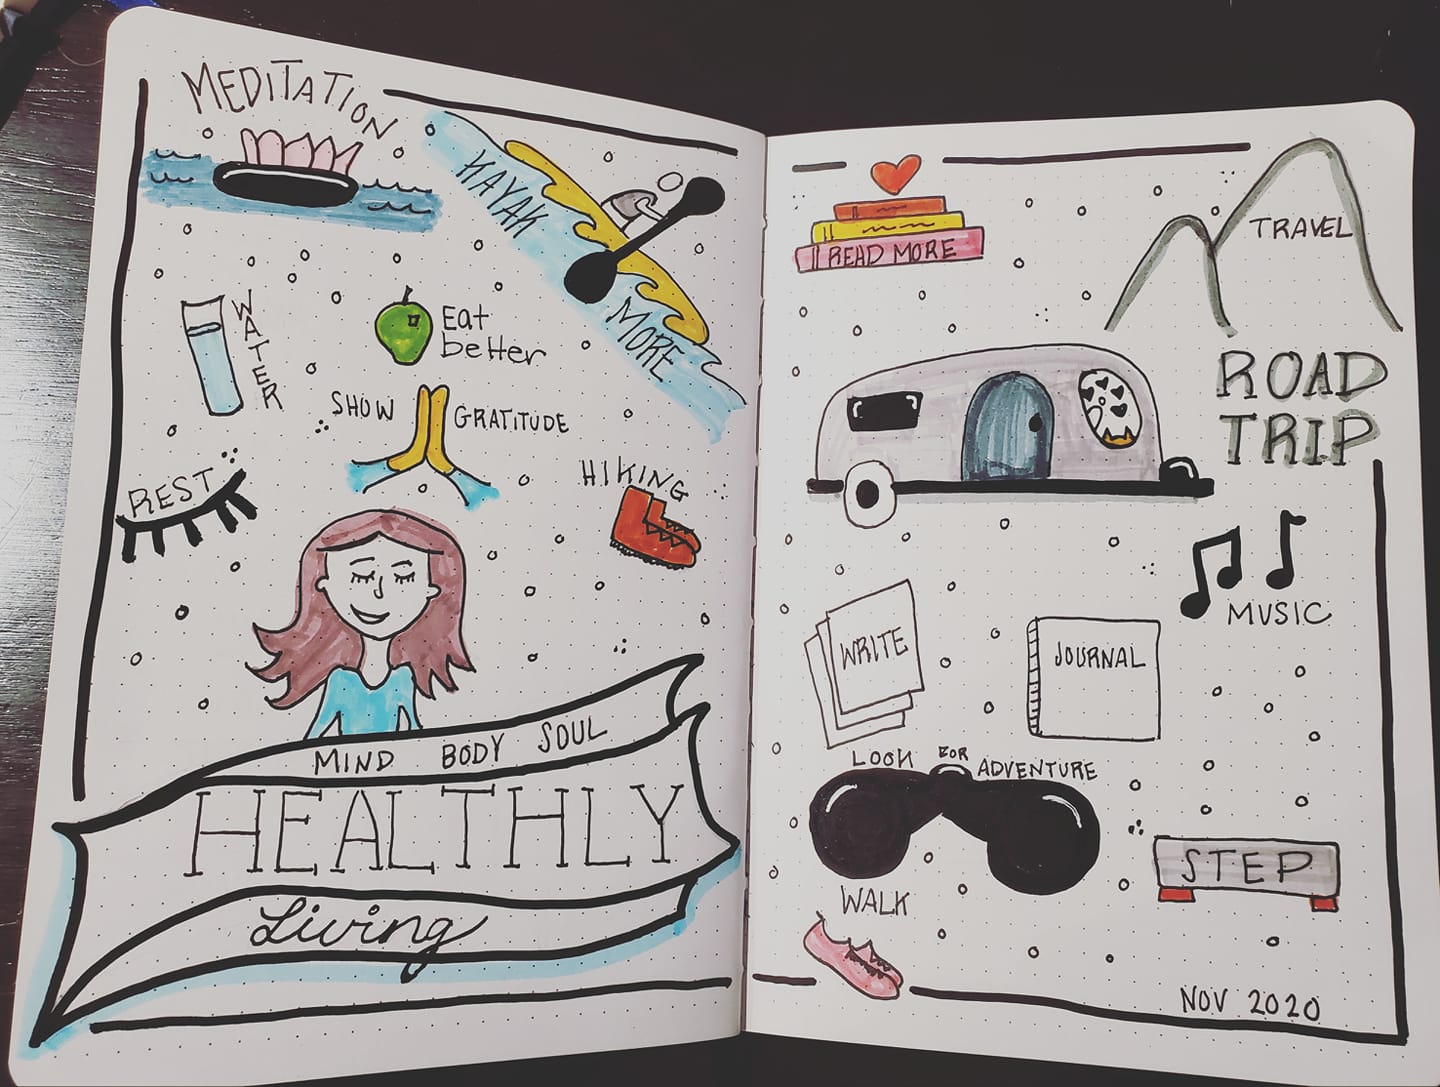 MEDITATION
KAYAK
MORE
WATER
Eat
better
SHOW GRATITUDE
REST
HIKING
MIND BODY SOUL
HEALTHLY
Living
READ MORE
TRAVEL
ROAD
TRIP
MUSIC
WRITE
JOURNAL
LOOK FOR ADVENTURE
STEP
WALK
NOV 2020